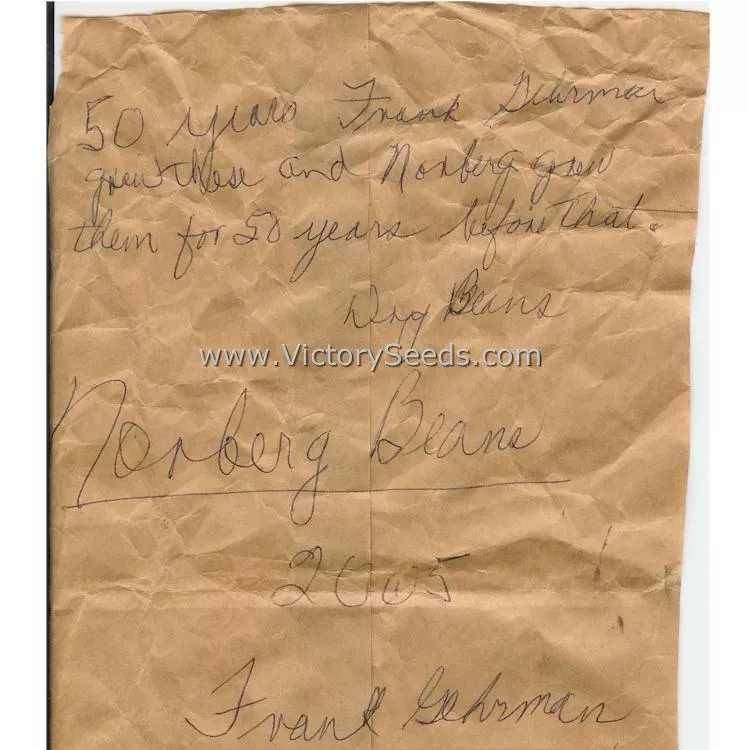 50 years Frank Gehrman
grew these and Norberg grew
them for 50 years before that.
Dry Beans
www.VictorySeeds.com
Norberg Beans
2005
Frank Gehrman